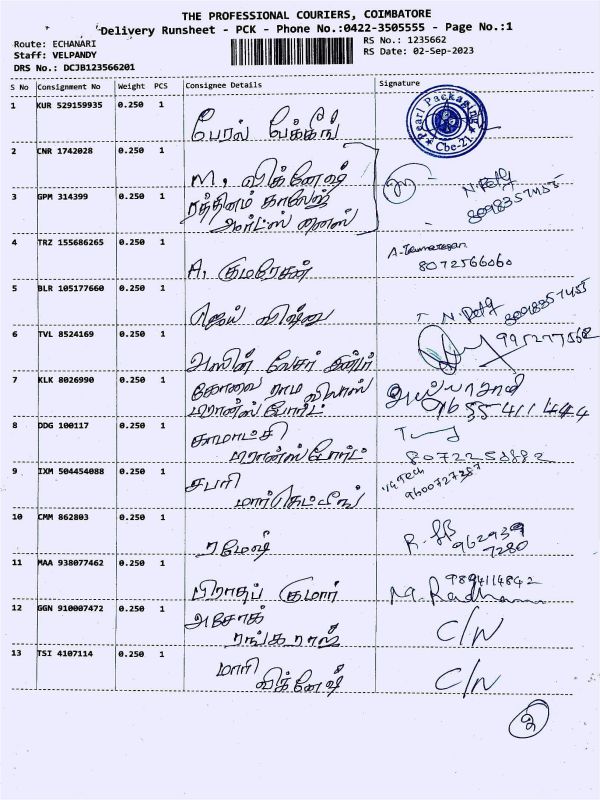 THE PROFESSIONAL COURIERS, COIMBATORE
Delivery Runsheet - PCK - Phone No.:0422-3505555 - Page No.:1
Route: ECHANARI
RS No.: 1235662
Staff: VELPANDY
RS Date: 02-Sep-2023
DRS No.: DCJB123566201
S No Consignment No Weight PCS Consignee Details Signature
1 KUR 529159935 0.250 1
பேரல் பேக்கிங்
Pearl Packaging Cbe-21
2 CNR 1742028 0.250 1
M. விக்னேஷ்
8098357455
3 GPM 314399 0.250 1
ரத்தினம் காலேஜ்
ஆர்ட்ஸ்
4 TRZ 155686265 0.250 1
A. குமரேசன்
8072566060
5 BLR 105177660 0.250 1
ஜெய் விஷ்ணு
8098357455
6 TVL 8524169 0.250 1
9952177562
7 KLK 8026990 0.250 1
கோவை ராம விலாஸ்
டிரான்ஸ்போர்ட்
8 DDG 100117 0.250 1
காமாட்சி
டிரான்ஸ்போர்ட்
9 IXM 504454088 0.250 1
சபரி
மார்கெட்டிங்
Tech
9600727387
10 CMM 862803 0.250 1
ரமேஷ்
962939
7280
11 MAA 938077462 0.250 1
பிரதாப் குமார்
9894114842
M. Radha
12 GGN 910007472 0.250 1
அசோக்
ரங்கராஜ்
C/N
13 TSI 4107114 0.250 1
மாரி
விக்னேஷ்
C/N